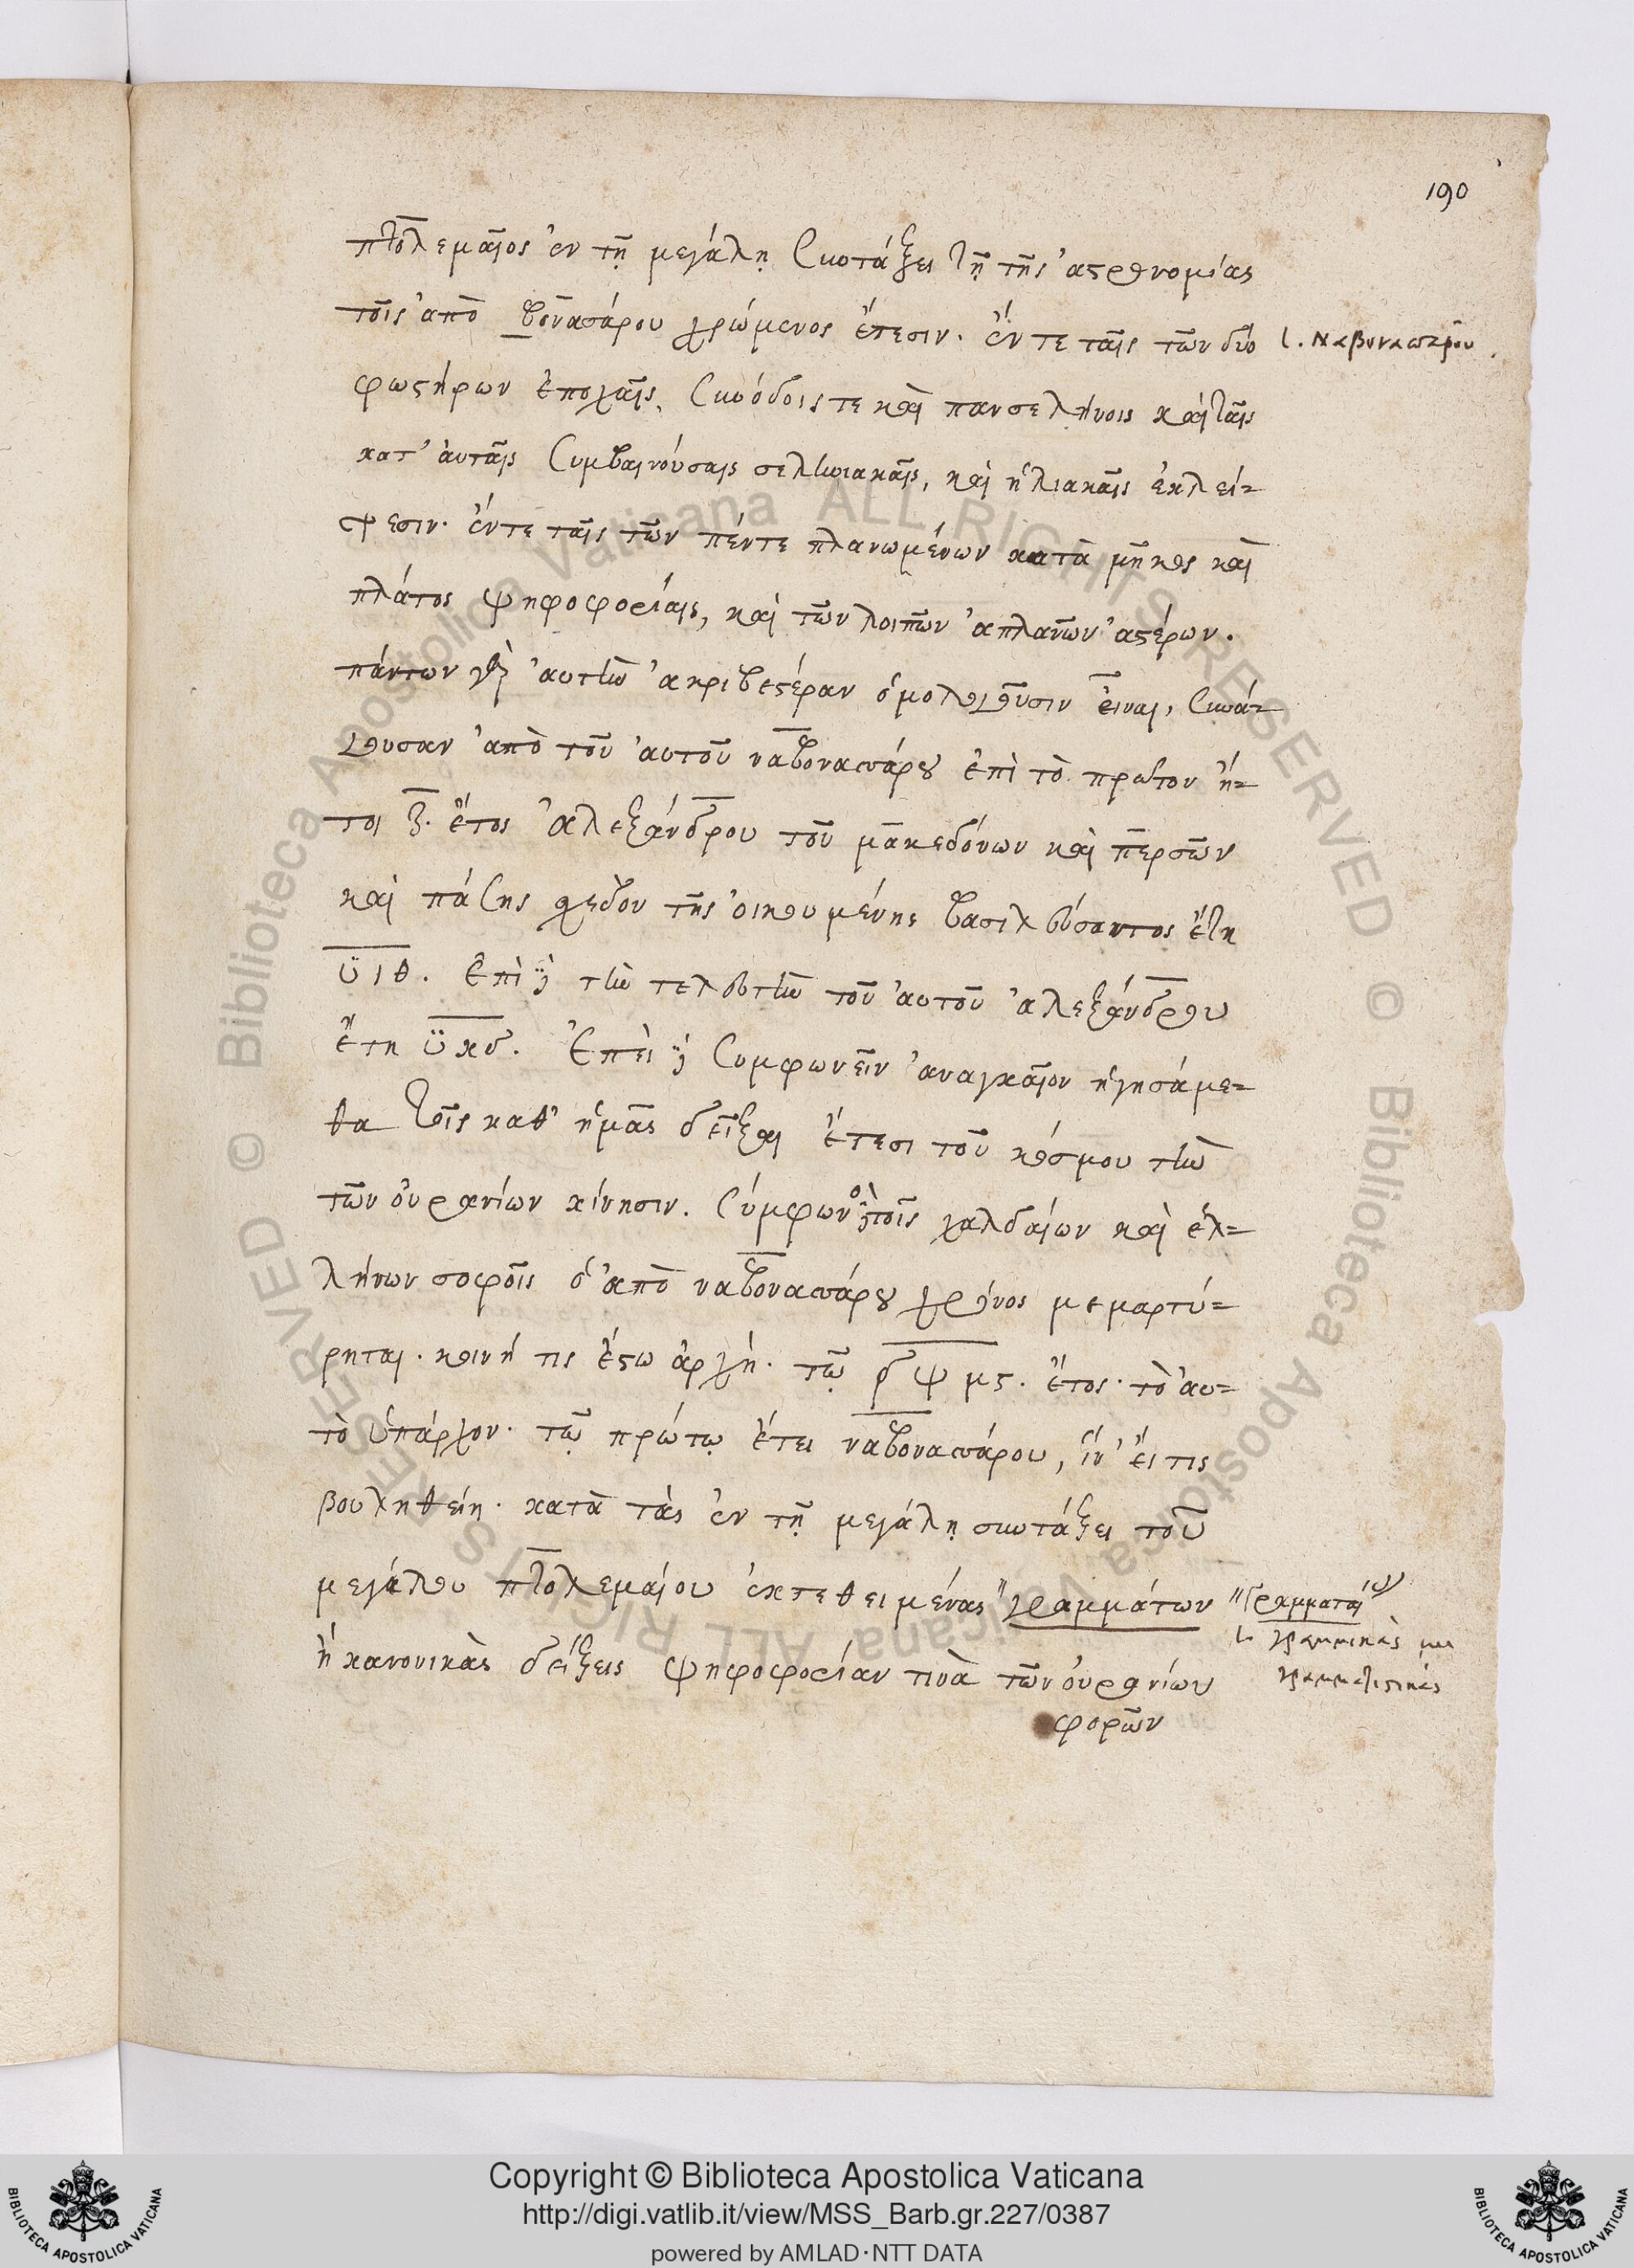 190
πτολεμαῖος ἐν τῇ μεγάλῃ συντάξει τῇ τῆς ἀστρονομίας
τοῖς ἀπὸ βονασάρου χρώμενος ἔπεσιν. ἔν τε ταῖς τῶν δύο
φωστήρων ἐποχαῖς, συνόδοις τε καὶ πανσελήνοις καὶ ταῖς
κατ' αὐταῖς συμβαινούσαις σεληνιακαῖς, καὶ ἡλιακαῖς ἐκλεί-
ψεσιν. ἔν τε ταῖς τῶν πέντε πλανωμένων κατὰ μῆκος καὶ
πλάτος ψηφοφορίαις, καὶ τῶν λοιπῶν ἀπλανῶν ἀστέρων.
πάντων γὰρ αὐτὴν ἀκριβεστέραν ὁμολογοῦσιν εἶναι, συνά-
γουσαν ἀπὸ τοῦ αὐτοῦ ναβονασάρου ἐπὶ τὸ πρῶτον ἤ-
τοι ζ. ἔτος ἀλεξάνδρου τοῦ μακεδόνων καὶ περσῶν
καὶ πάσης σχεδὸν τῆς οἰκουμένης βασιλεύσαντος ἔτη
ϋιθ. ἐπὶ δὲ τὴν τελευτὴν τοῦ αὐτοῦ ἀλεξάνδρου
ἔτη ϋκδ. ἐπεὶ δὲ συμφωνεῖν ἀναγκαῖον ἡγησάμε-
θα τοῖς καθ' ἡμᾶς δεῖξαι ἔτεσι τοῦ κόσμου τὴν
τῶν οὐρανίων κίνησιν. σύμφωνο δὲ τοῖς χαλδαίων καὶ ἑλ-
λήνων σοφοῖς ὁ ἀπὸ ναβονασάρου χρόνος μεμαρτύ-
ρηται. κοινή τις ἔστω ἀρχή. τῷ δψμς. ἔτος. τὸ αὐ-
τὸ ὑπάρχον. τῷ πρώτῳ ἔτει ναβονασάρου, ἵν' εἴ τις
βουληθείη. κατὰ τὰς ἐν τῇ μεγάλῃ συντάξει τοῦ
μεγάλου πτολεμαίου ἐκτεθειμένας "γραμμάτων
ἢ κανονικὰς δείξεις ψηφοφορίαν τινὰ τῶν οὐρανίων
φορῶν
l. Ναβονασάρου.
"Γραμματαί
l. γραμμικὰς
γραμματιστικάς
Copyright © Biblioteca Apostolica Vaticana
http://digi.vatlib.it/view/MSS_Barb.gr.227/0387
powered by AMLAD·NTT DATA
BIBLIOTECA APOSTOLICA VATICANA
BIBLIOTECA APOSTOLICA VATICANA
© Biblioteca Apostolica Vaticana ALL RIGHTS RESERVED
© Biblioteca Apostolica Vaticana ALL RIGHTS RESERVED